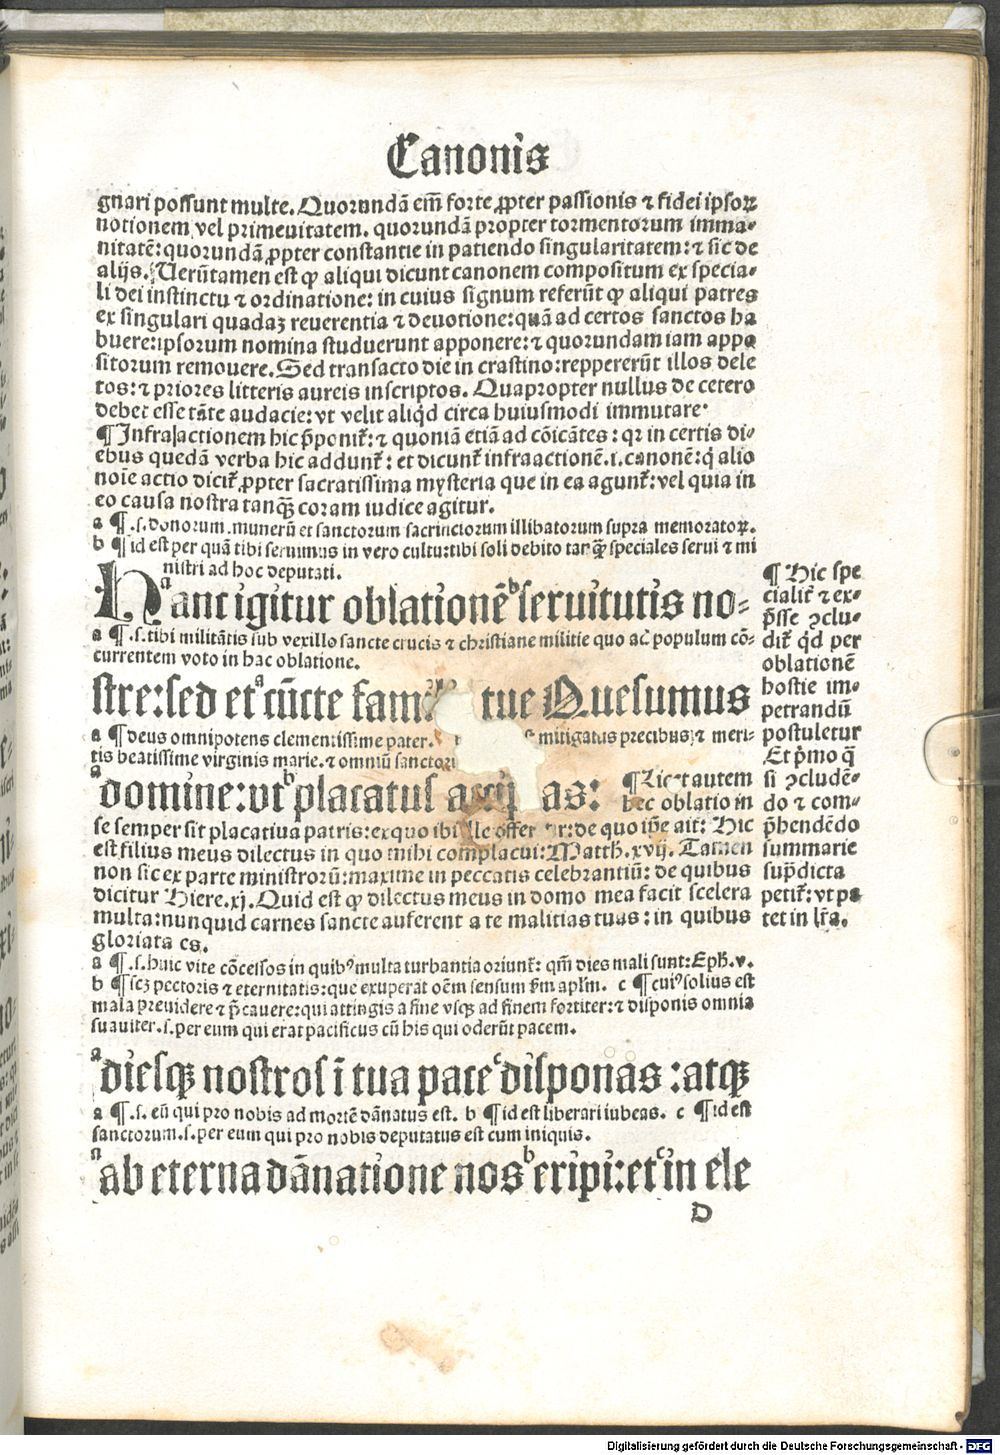 Canonis
gnari possunt multe. Quorundā em̄ forte ꝓpter passionis ⁊ fidei ipsoꝝ
notionem vel primeuitatem. quorundā propter tormentorum imma-
nitatē: quorundā ꝓpter constantie in patiendo singularitatem: ⁊ sic de
alijs. Uerūtamen est ꝙ aliqui dicunt canonem compositum ex specia-
li dei instinctu ⁊ ordinatione: in cuius signum referūt ꝙ aliqui patres
ex singulari quadaꝫ reuerentia ⁊ deuotione: quā ad certos sanctos ha
buere: ipsorum nomina studuerunt apponere: ⁊ quorundam iam appo
sitorum remouere. Sed transacto die in crastino: reppererūt illos dele
tos: ⁊ priores litteris aureis inscriptos. Quapropter nullus de cetero
debet esse tāte audacie: vt velit aliqd circa huiusmodi immutare.
¶ Infra actionem hic p̄ponit̄: ⁊ quoniā etiā ad cōicātes: qꝛ in certis di-
ebus quedā verba hic addunt̄: et dicunt̄ infraactionē .i. canonē: q̄ alio
noīe actio dicit̄ ꝓpter sacratissima mysteria que in ea agunt̄: vel quia in
eo causa nostra tanqꝫ coram iudice agitur.
a ¶ .s. donorum. munerū et sanctorum sacrificiorum illibatorum supra memoratoꝝ.
b ¶ id est per quā tibi seruimus in vero cultu: tibi soli debito tanqꝫ speciales serui ⁊ mi
nistri ad hoc deputati.
Hanc igitur oblationē seruitutis no-
a ¶ .s. tibi militātis sub vexillo sancte crucis ⁊ christiane militie quo ac̄ populum cō-
currentem voto in hac oblatione.
stre: sed et cūcte fam tue Quesumus
a ¶ deus omnipotens clementissime pater. mitigatus precibus ⁊ meri-
tis beatissime virginis marie. ⁊ omniū sanctorū
domine: vt placatus accipias:
¶ Licet autem
hec oblatio in
se semper sit placatiua patris: ex quo ibi ille offertur: de quo ip̄e ait: Hic
est filius meus dilectus in quo mihi complacui: Matth. xvij. Tamen
non sic ex parte ministrorū: maxime in peccatis celebrantiū: de quibus
dicitur Hiere. xj. Quid est ꝙ dilectus meus in domo mea facit scelera
multa: nunquid carnes sancte auferent a te malitias tuas: in quibus
gloriata es.
a ¶ .s. huic vite cōcessos in quibꝰ multa turbantia oriunt̄: qm̄ dies mali sunt: Eph. v.
b ¶ scꝫ pectoris ⁊ eternitatis: que exuperat oēm sensum ẜm apl̄m. c ¶ cuiꝰ solius est
mala preuidere ⁊ p̄cauere: qui attingis a fine vsqꝫ ad finem fortiter: ⁊ disponis omnia
suauiter. s. per eum qui erat pacificus cū his qui oderūt pacem.
diesqꝫ nostros ī tua pace disponas: atqꝫ
a ¶ .s. eū qui pro nobis ad mortē dānatus est. b ¶ id est liberari iubeas. c ¶ id est
sanctorum. s. per eum qui pro nobis deputatus est cum iniquis.
ab eterna dānatione nos eripi: et in ele
D
¶ Hic spe
cialit̄ ⁊ ex-
p̄sse ꝯclu-
dit̄ qd per
oblationē
hostie im-
petrandū
postuletur
Et p̄mo q̄
si ꝯcludē-
do ⁊ com-
p̄hendēdo
summarie
sup̄dicta
petit̄: vt pa
tet in lr̄a.
Digitalisierung gefördert durch die Deutsche Forschungsgemeinschaft - DFG